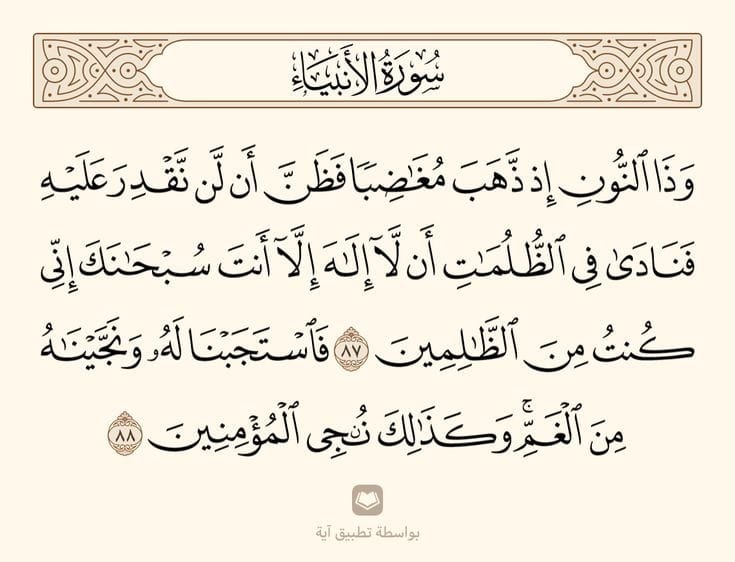 سُورَةُ الأَنبِيَاءِ
وَذَا ٱلنُّونِ إِذ ذَّهَبَ مُغَٰضِبٗا فَظَنَّ أَن لَّن نَّقۡدِرَ عَلَيۡهِ
فَنَادَىٰ فِي ٱلظُّلُمَٰتِ أَن لَّآ إِلَٰهَ إِلَّآ أَنتَ سُبۡحَٰنَكَ إِنِّي
كُنتُ مِنَ ٱلظَّٰلِمِينَ ٨٧ فَٱسۡتَجَبۡنَا لَهُۥ وَنَجَّيۡنَٰهُ
مِنَ ٱلۡغَمِّۚ وَكَذَٰلِكَ نُـۨجِي ٱلۡمُؤۡمِنِينَ ٨٨
بواسطة تطبيق آية